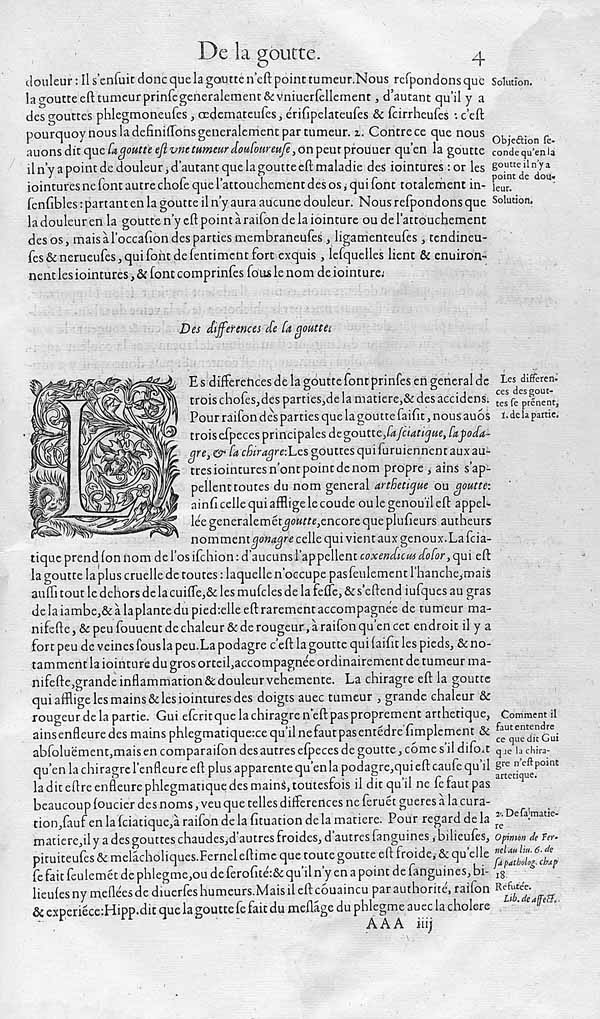 De la goutte.
4
douleur : Il s'enſuit donc que la goutte n'eſt point tumeur. Nous reſpondons que
la goutte eſt tumeur prinſe generalement & vniuerſellement, d'autant qu'il y a
des gouttes phlegmoneuſes, œdemateuſes,ériſipelateuſes & ſcirrheuſes : c'eſt
pourquoy nous la definiſſons generalement par tumeur. 2. Contre ce que nous
auons dit que la goutte eſt vne tumeur douloureuſe, on peut prouuer qu'en la goutte
il n'y a point de douleur, d'autant que la goutte eſt maladie des iointures : or les
iointures ne ſont autre choſe que l'attouchement des os, qui ſont totalement in-
ſenſibles : partant en la goutte il n'y aura aucune douleur. Nous reſpondons que
la douleur en la goutte n'y eſt point à raiſon de la iointure ou de l'attouchement
des os, mais à l'occaſion des parties membraneuſes, ligamenteuſes, tendineu-
ſes & nerueuſes, qui ſont de ſentiment fort exquis, leſquelles lient & enuiron-
nent les iointures, & ſont comprinſes ſous le nom de iointure.
Solution.
Objection ſe-
conde qu'en la
goutte il n'y a
point de dou-
leur.
Solution.
Des differences de la goutte.
LEs differences de la goutte ſont prinſes en general de
trois choſes, des parties, de la matiere, & des accidens.
Pour raiſon des parties que la goutte ſaiſit, nous auõs
trois eſpeces principales de goutte, la ſciatique, la poda-
gre, & la chiragre : Les gouttes qui ſuruiennent aux au-
tres iointures n'ont point de nom propre, ains s'ap-
pellent toutes du nom general arthetique ou goutte :
ainſi celle qui afflige le coude ou le genoüil eſt appel-
lée generalemẽt goutte, encore que pluſieurs autheurs
nomment gonagre celle qui vient aux genoux. La ſcia-
tique prend ſon nom de l'os iſchion : d'aucuns l'appellent coxendicus dolor, qui eſt
la goutte la plus cruelle de toutes : laquelle n'occupe pas ſeulement l'hanche, mais
auſſi tout le dehors de la cuiſſe, & les muſcles de la feſſe, & s'eſtend iuſques au gras
de la iambe, & à la plante du pied : elle eſt rarement accompagnée de tumeur ma-
nifeſte, & peu ſouuent de chaleur & de rougeur, à raiſon qu'en cet endroit il y a
fort peu de veines ſous la peau. La podagre c'eſt la goutte qui ſaiſit les pieds, & no-
tamment la iointure du gros orteil, accompagnée ordinairement de tumeur ma-
nifeſte, grande inflammation & douleur vehemente. La chiragre eſt la goutte
qui afflige les mains & les iointures des doigts auec tumeur, grande chaleur &
rougeur de la partie. Gui eſcrit que la chiragre n'eſt pas proprement arthetique,
ains enfleure des mains phlegmatique : ce qu'il ne faut pas entẽdre ſimplement &
abſoluëment, mais en comparaiſon des autres eſpeces de goutte, cõme s'il diſoit
qu'en la chiragre l'enfleure eſt plus apparente qu'en la podagre, qui eſt cauſe qu'il
la dit eſtre enfleure phlegmatique des mains, toutesfois il dit qu'il ne ſe faut pas
beaucoup ſoucier des noms, veu que telles differences ne ſeruẽt gueres à la cura-
tion, ſauf en la ſciatique, à raiſon de la ſituation de la matiere. Pour regard de la
matiere, il y a des gouttes chaudes, d'autres froides, d'autres ſanguines, bilieuſes,
pituiteuſes & melãcholiques. Fernel eſtime que toute goutte eſt froide, & qu'elle
ſe fait ſeulemẽt de phlegme, ou de ſeroſité : & qu'il n'y en a point de ſanguines, bi-
lieuſes ny meſlées de diuerſes humeurs. Mais il eſt cõuaincu par authorité, raiſon
& experiẽce : Hipp. dit que la goutte ſe fait du meſlãge du phlegme auec la cholere
Les differen-
ces des gout-
tes ſe prẽnent,
1. de la partie.
Comment il
faut entendre
ce que dit Gui
que la chira-
gre n'eſt point
artetique.
2. De la matie-
re
Opinion de Fer-
nel au liu. 6. de
ſa patholog. chap
18
Refutée.
Lib. de affect.
AAA iiij